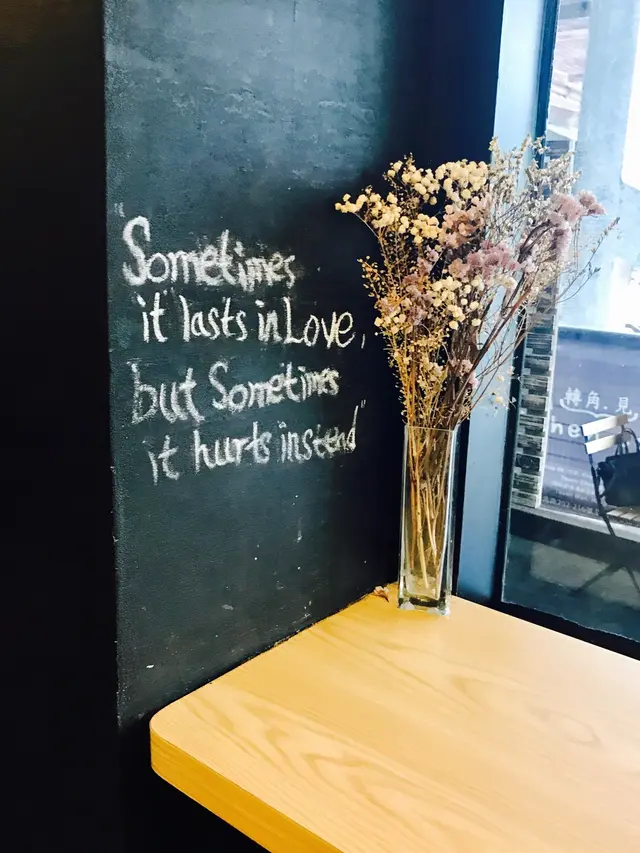 "Sometimes
it lasts in Love,
but Sometimes
it hurts instead"
轉角.見
the